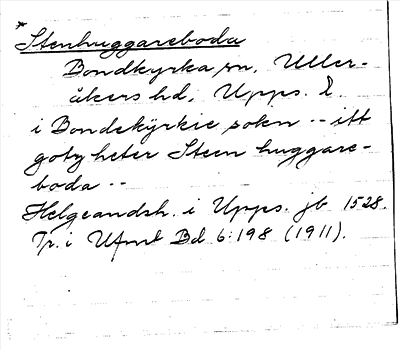 * Stenhuggareboda
Bondkyrka sn, Uller-
åkers hd, Upps. l.
i Bondekÿrkie sokn -- itt
gotz heter Steen huggare-
boda --
Helgeandsh. i Upps. jb 1528.
Tr. i Ufmt Bd 6:198 (1911).